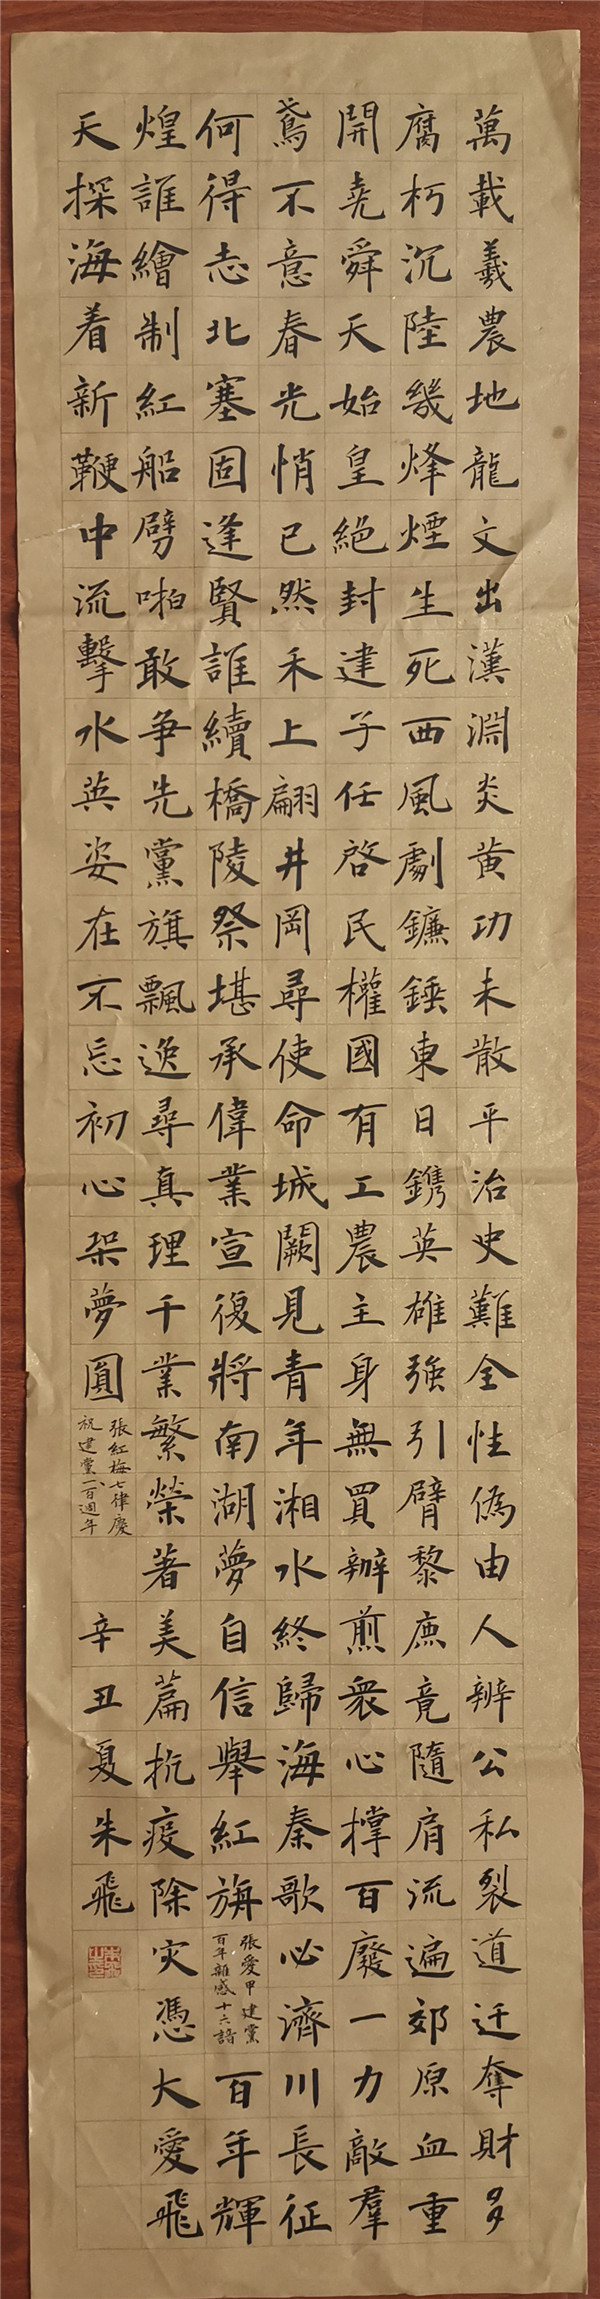 萬載羲農地龍文出漢淵炎黃功未散平治史難全性僞由人辨公私裂道迁奪財多
腐朽沉陸幾烽煙生死西風劇鐮錘東日鐫英雄強引臂黎庶竟隨肩流遍郊原血重
開堯舜天始皇絕封建子任啓民權國有工農主身無買辦煎衆心撑百廢一力敵羣
鳶不意春光悄已然禾上翩井岡尋使命城闕見青年湘水終歸海秦歌必濟川長征
何得志北塞固逢賢誰續橋陵祭堪承偉業宣復將南湖夢自信舉紅旃
張愛甲建黨
百年雜感十六韻
百年輝
煌誰繪制紅船劈啪敢爭先黨旗飄逸尋真理千業繁榮著美篇抗疫除灾憑大愛飛
天探海看新鞭中流擊水英姿在不忘初心架夢圓
張紅梅七律慶
祝建黨一百週年
辛丑夏朱飛